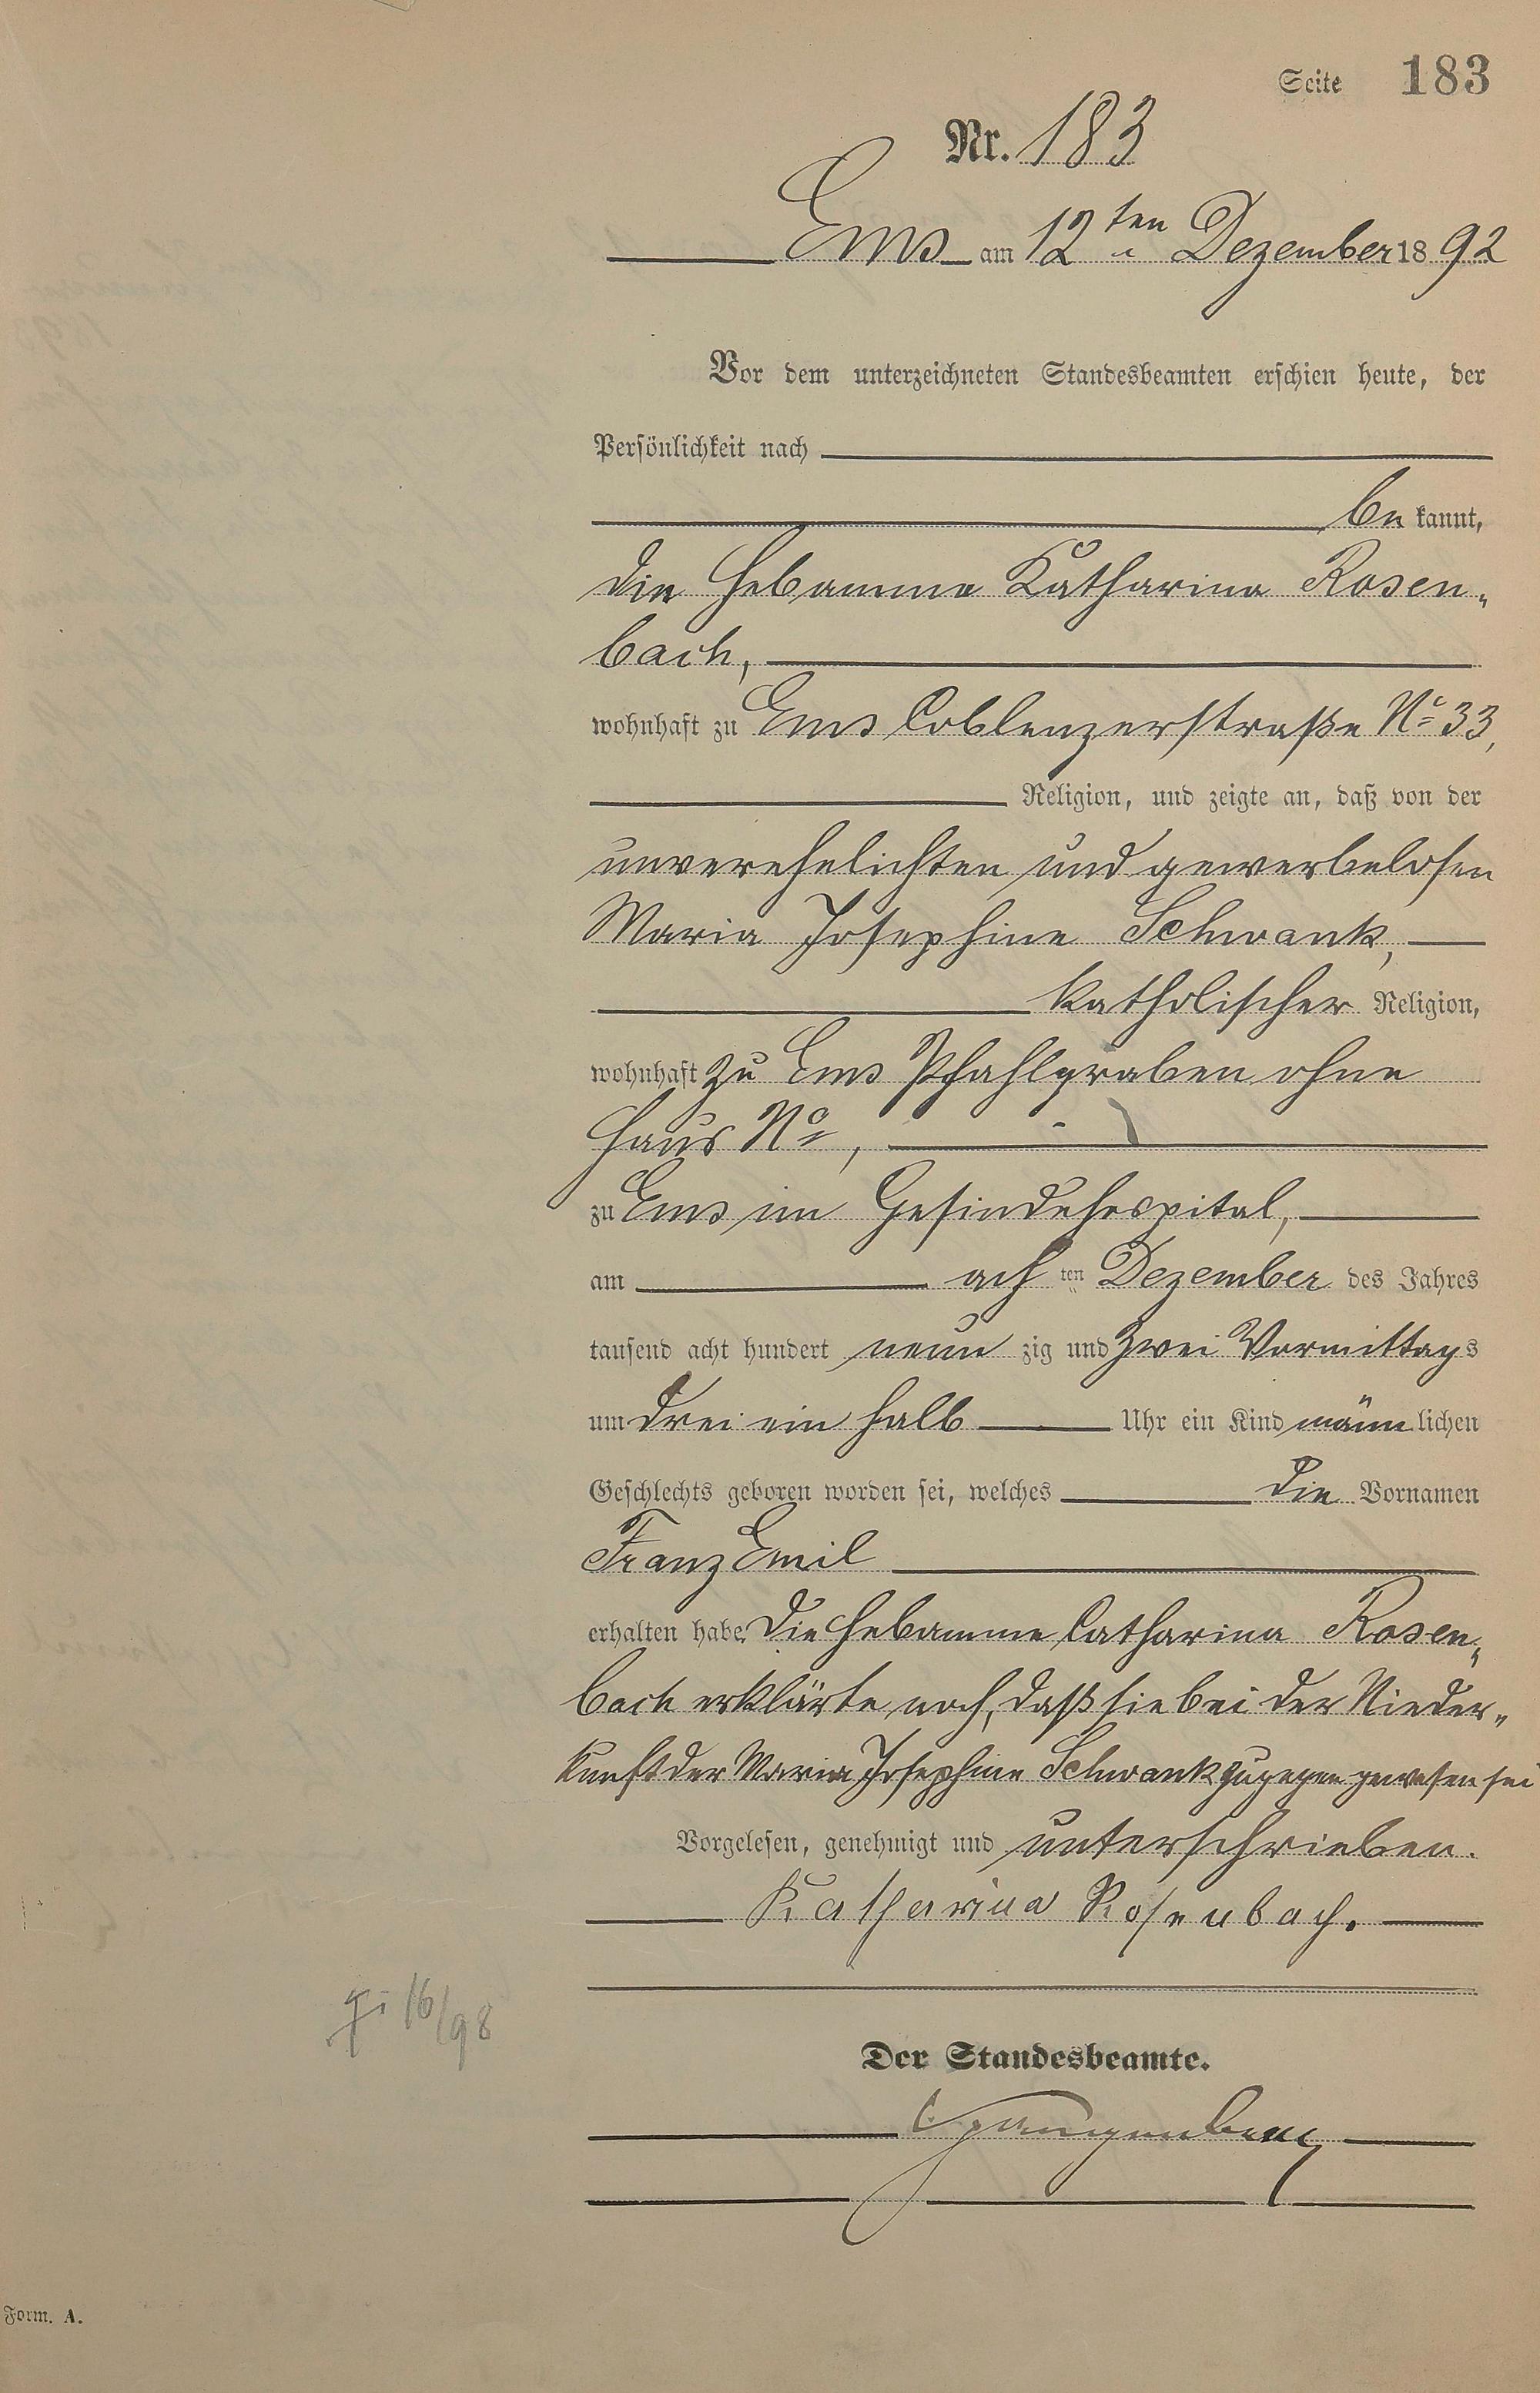 Seite 183
Nr. 183
Ems am 12ten Dezember 1892
Vor dem unterzeichneten Standesbeamten erschien heute, der
Persönlichkeit nach
be kannt,
die Hebamme Katharina Rosen„
bach,
wohnhaft zu Ems Coblenzerstraße No 33,
Religion, und zeigte an, daß von der
unverehelichten und gewerbelosen
Maria Josephine Schwank,
katholischer Religion,
wohnhaft zu Ems Pfahlgraben ohne
Haus No,
zu Ems im Gesindehospital,
am ach ten Dezember des Jahres
tausend acht hundert neun zig und zwei Vormittags
um drei ein halb Uhr ein Kind männlichen
Geschlechts geboren worden sei, welches die Vornamen
Franz Emil
erhalten habe. Die Hebamme Catharina Rosen„
bach erklärte noch, daß sie bei der Nieder„
kunft der Maria Josephine Schwank zugegen gewesen sei
Vorgelesen, genehmigt und unterschrieben.
Katharina Rosenbach.
16/98
Der Standesbeamte.
Form. A.